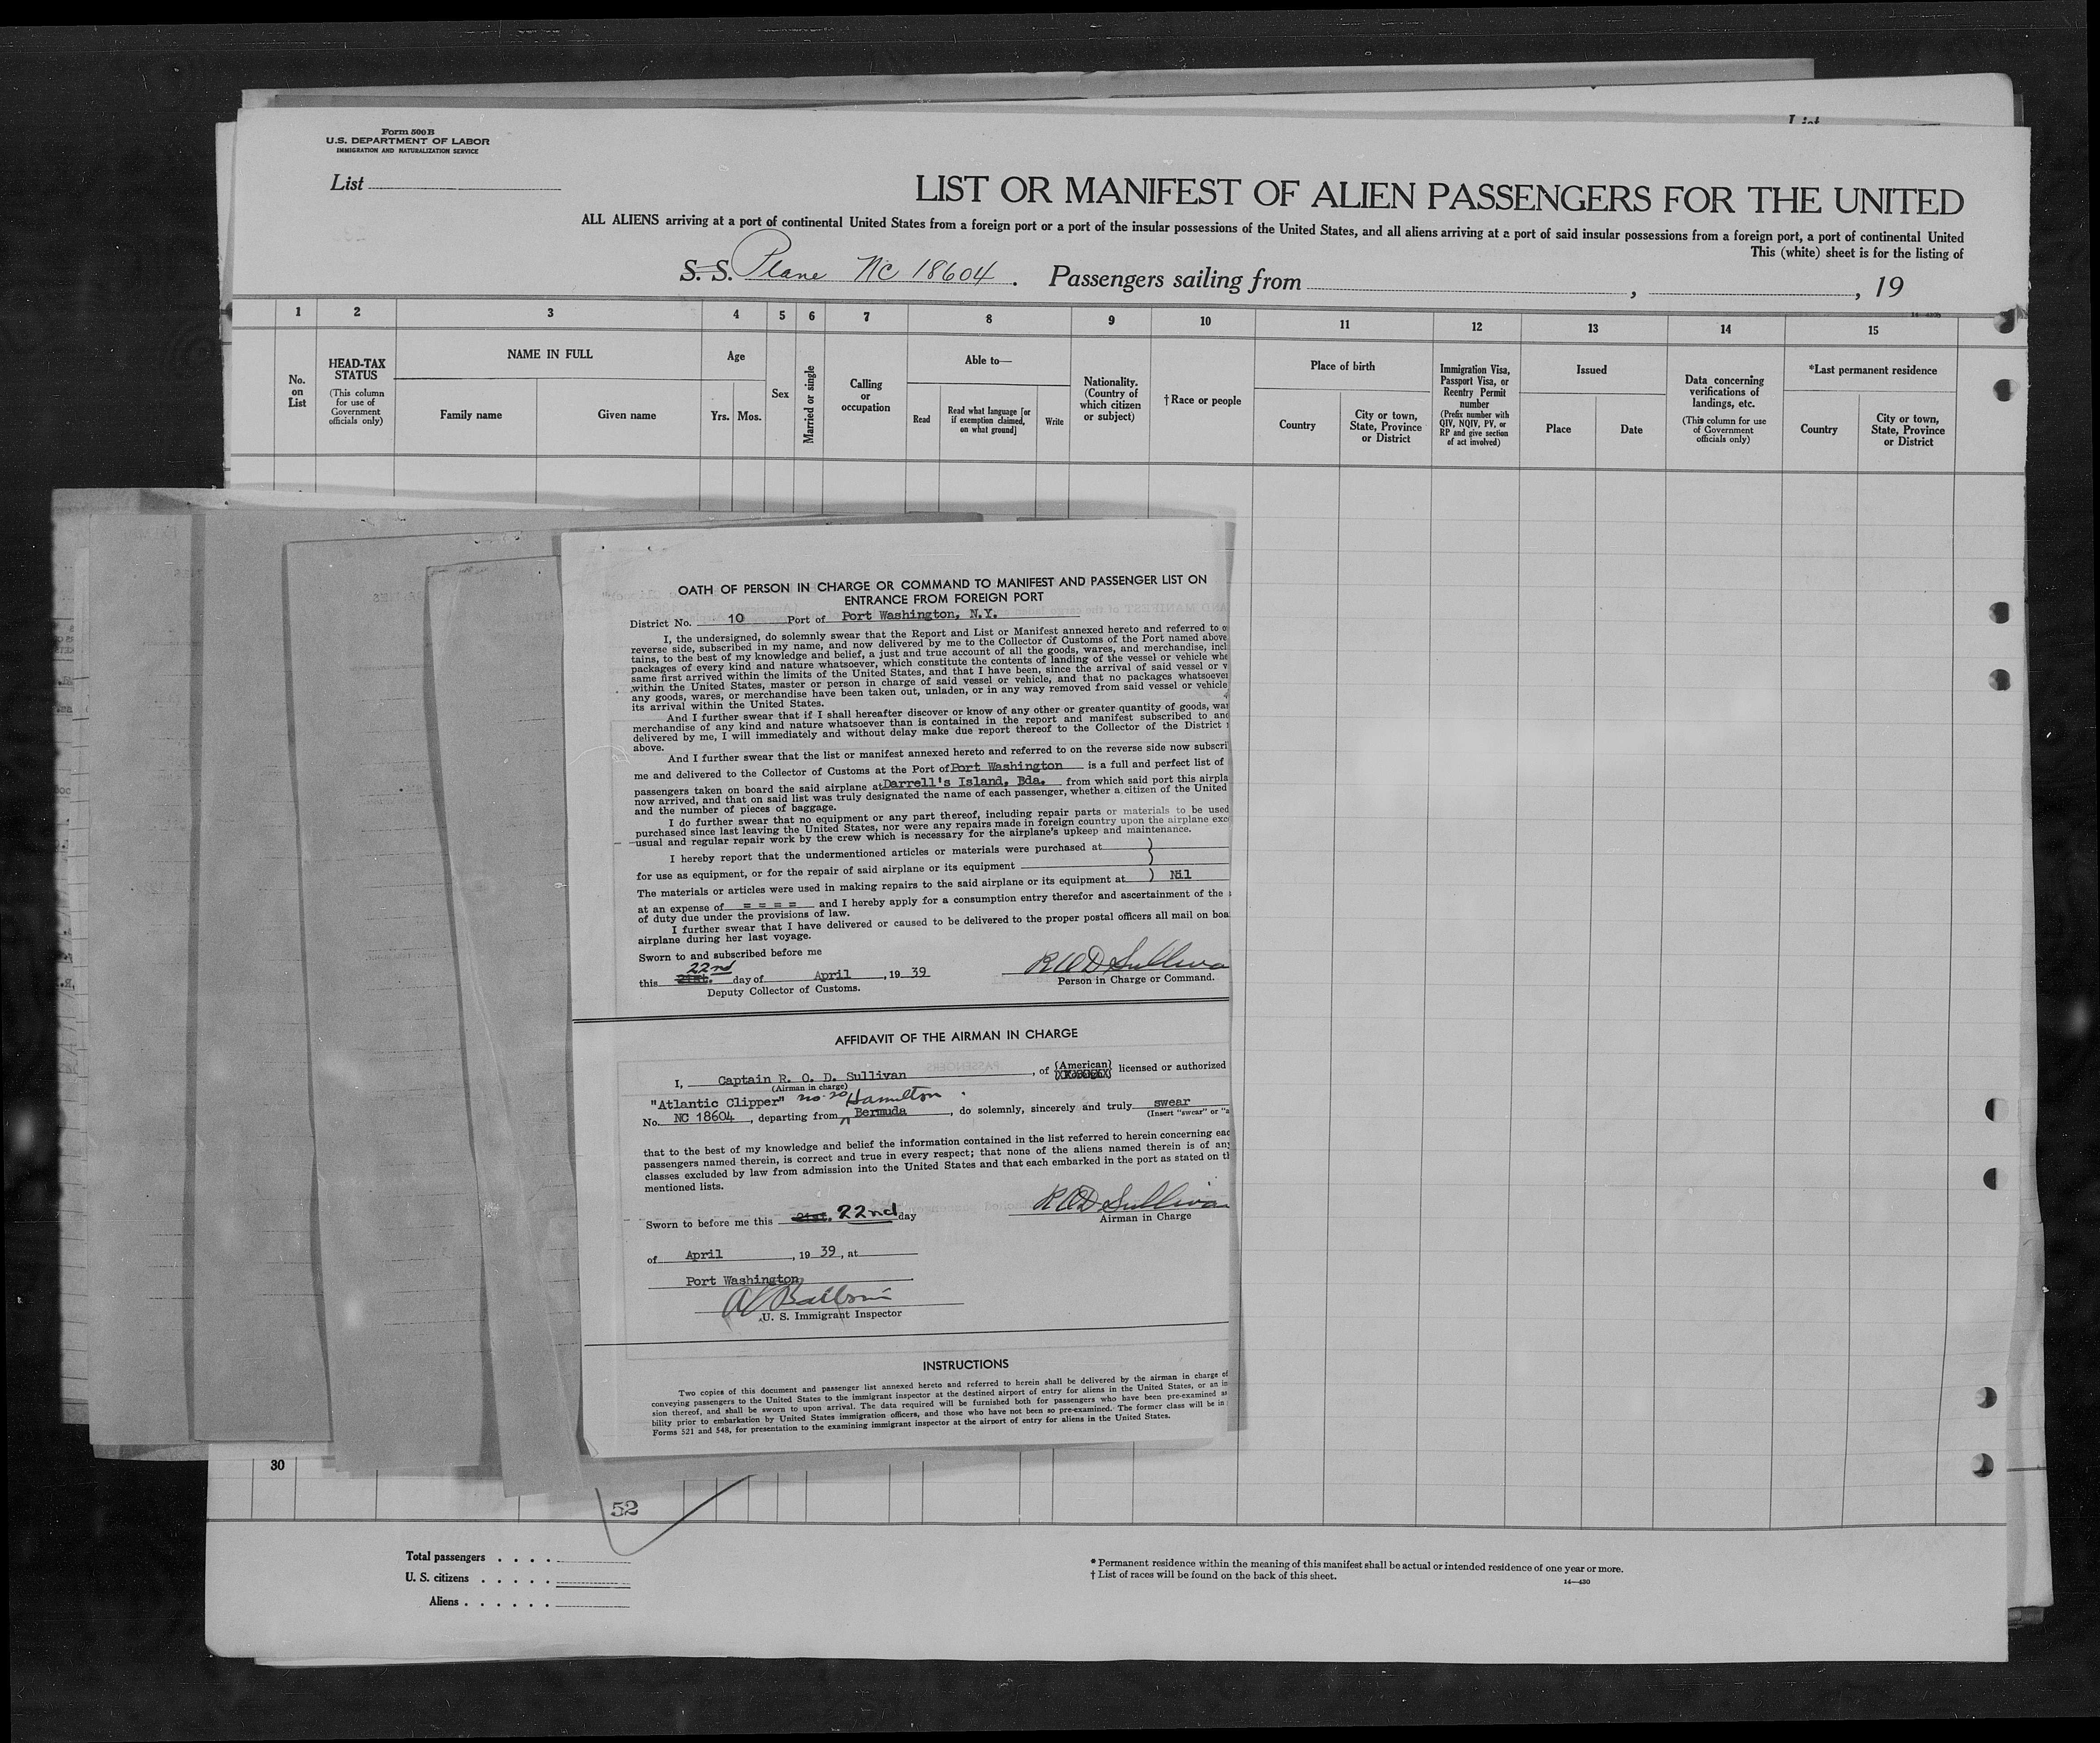 Form 500B
U.S. DEPARTMENT OF LABOR
IMMIGRATION AND NATURALIZATION SERVICE
List
LIST OR MANIFEST OF ALIEN PASSENGERS FOR THE UNITED
ALL ALIENS arriving at a port of continental United States from a foreign port or a port of the insular possessions of the United States, and all aliens arriving at a port of said insular possessions from a foreign port, a port of continental United
This (white) sheet is for the listing of
S. S. Plane NC 18604. Passengers sailing from , , 19
1 2 3 4 5 6 7 8 9 10 11 12 13 14 15
No. on List
HEAD-TAX STATUS
(This column for use of Government officials only)
NAME IN FULL
Family name
Given name
Age
Yrs.
Mos.
Sex
Married or single
Calling or occupation
Able to—
Read
Read what language [or if exemption claimed, on what ground]
Write
Nationality. (Country of which citizen or subject)
†Race or people
Place of birth
Country
City or town, State, Province or District
Immigration Visa, Passport Visa, or Reentry Permit number
(Prefix number with QIV, NQIV, PV, or RP and give section of act involved)
Issued
Place
Date
Data concerning verifications of landings, etc.
(This column for use of Government officials only)
*Last permanent residence
Country
City or town, State, Province or District
OATH OF PERSON IN CHARGE OR COMMAND TO MANIFEST AND PASSENGER LIST ON
ENTRANCE FROM FOREIGN PORT
District No. 10 Port of Port Washington, N.Y.
I, the undersigned, do solemnly swear that the Report and List or Manifest annexed hereto and referred to
reverse side, subscribed in my name, and now delivered by me to the Collector of Customs of the Port named above
tains, to the best of my knowledge and belief, a just and true account of all the goods, wares, and merchandise, incl
packages of every kind and nature whatsoever, which constitute the contents of landing of the vessel or vehicle whe
same first arrived within the limits of the United States, and that I have been, since the arrival of said vessel or v
within the United States, master or person in charge of said vessel or vehicle, and that no packages whatsoever
any goods, wares, or merchandise have been taken out, unladen, or in any way removed from said vessel or vehicle
its arrival within the United States.
And I further swear that if I shall hereafter discover or know of any other or greater quantity of goods, war
merchandise of any kind and nature whatsoever than is contained in the report and manifest subscribed to and
delivered by me, I will immediately and without delay make due report thereof to the Collector of the District
above.
And I further swear that the list or manifest annexed hereto and referred to on the reverse side now subscri
me and delivered to the Collector of Customs at the Port of Port Washington is a full and perfect list of
passengers taken on board the said airplane at Darrell's Island, Bda. from which said port this airpla
now arrived, and that on said list was truly designated the name of each passenger, whether a citizen of the United
and the number of pieces of baggage.
I do further swear that no equipment or any part thereof, including repair parts or materials to be used
purchased since last leaving the United States, nor were any repairs made in foreign country upon the airplane exc
usual and regular repair work by the crew which is necessary for the airplane's upkeep and maintenance.
I hereby report that the undermentioned articles or materials were purchased at
for use as equipment, or for the repair of said airplane or its equipment
The materials or articles were used in making repairs to the said airplane or its equipment at ) Nil
at an expense of = = = = and I hereby apply for a consumption entry therefor and ascertainment of the
of duty due under the provisions of law.
I further swear that I have delivered or caused to be delivered to the proper postal officers all mail on boa
airplane during her last voyage.
Sworn to and subscribed before me
22nd
this 21st. day of April , 19 39
R O D Sulliva
Deputy Collector of Customs.
Person in Charge or Command.
AFFIDAVIT OF THE AIRMAN IN CHARGE
I, Captain R. O. D. Sullivan , of {American} licensed or authorized
(Airman in charge)
"Atlantic Clipper" no. 20 Hamilton
No. NC 18604 , departing from Bermuda , do solemnly, sincerely and truly swear
(Insert "swear" or "a
that to the best of my knowledge and belief the information contained in the list referred to herein concerning eac
passengers named therein, is correct and true in every respect; that none of the aliens named therein is of any
classes excluded by law from admission into the United States and that each embarked in the port as stated on th
mentioned lists.
R O D Sullivan
Sworn to before me this 21st. 22nd day
Airman in Charge
of April , 19 39 , at
Port Washington
U. S. Immigrant Inspector
INSTRUCTIONS
Two copies of this document and passenger list annexed hereto and referred to herein shall be delivered by the airman in charge of
conveying passengers to the United States to the immigrant inspector at the destined airport of entry for aliens in the United States, or an in
sion thereof, and shall be sworn to upon arrival. The data required will be furnished both for passengers who have been pre-examined as
bility prior to embarkation by United States immigration officers, and those who have not been so pre-examined. The former class will be in
Forms 521 and 548, for presentation to the examining immigrant inspector at the airport of entry for aliens in the United States.
30
52
Total passengers . . . .
U. S. citizens . . . . .
Aliens . . . . . .
* Permanent residence within the meaning of this manifest shall be actual or intended residence of one year or more.
† List of races will be found on the back of this sheet.
14—430